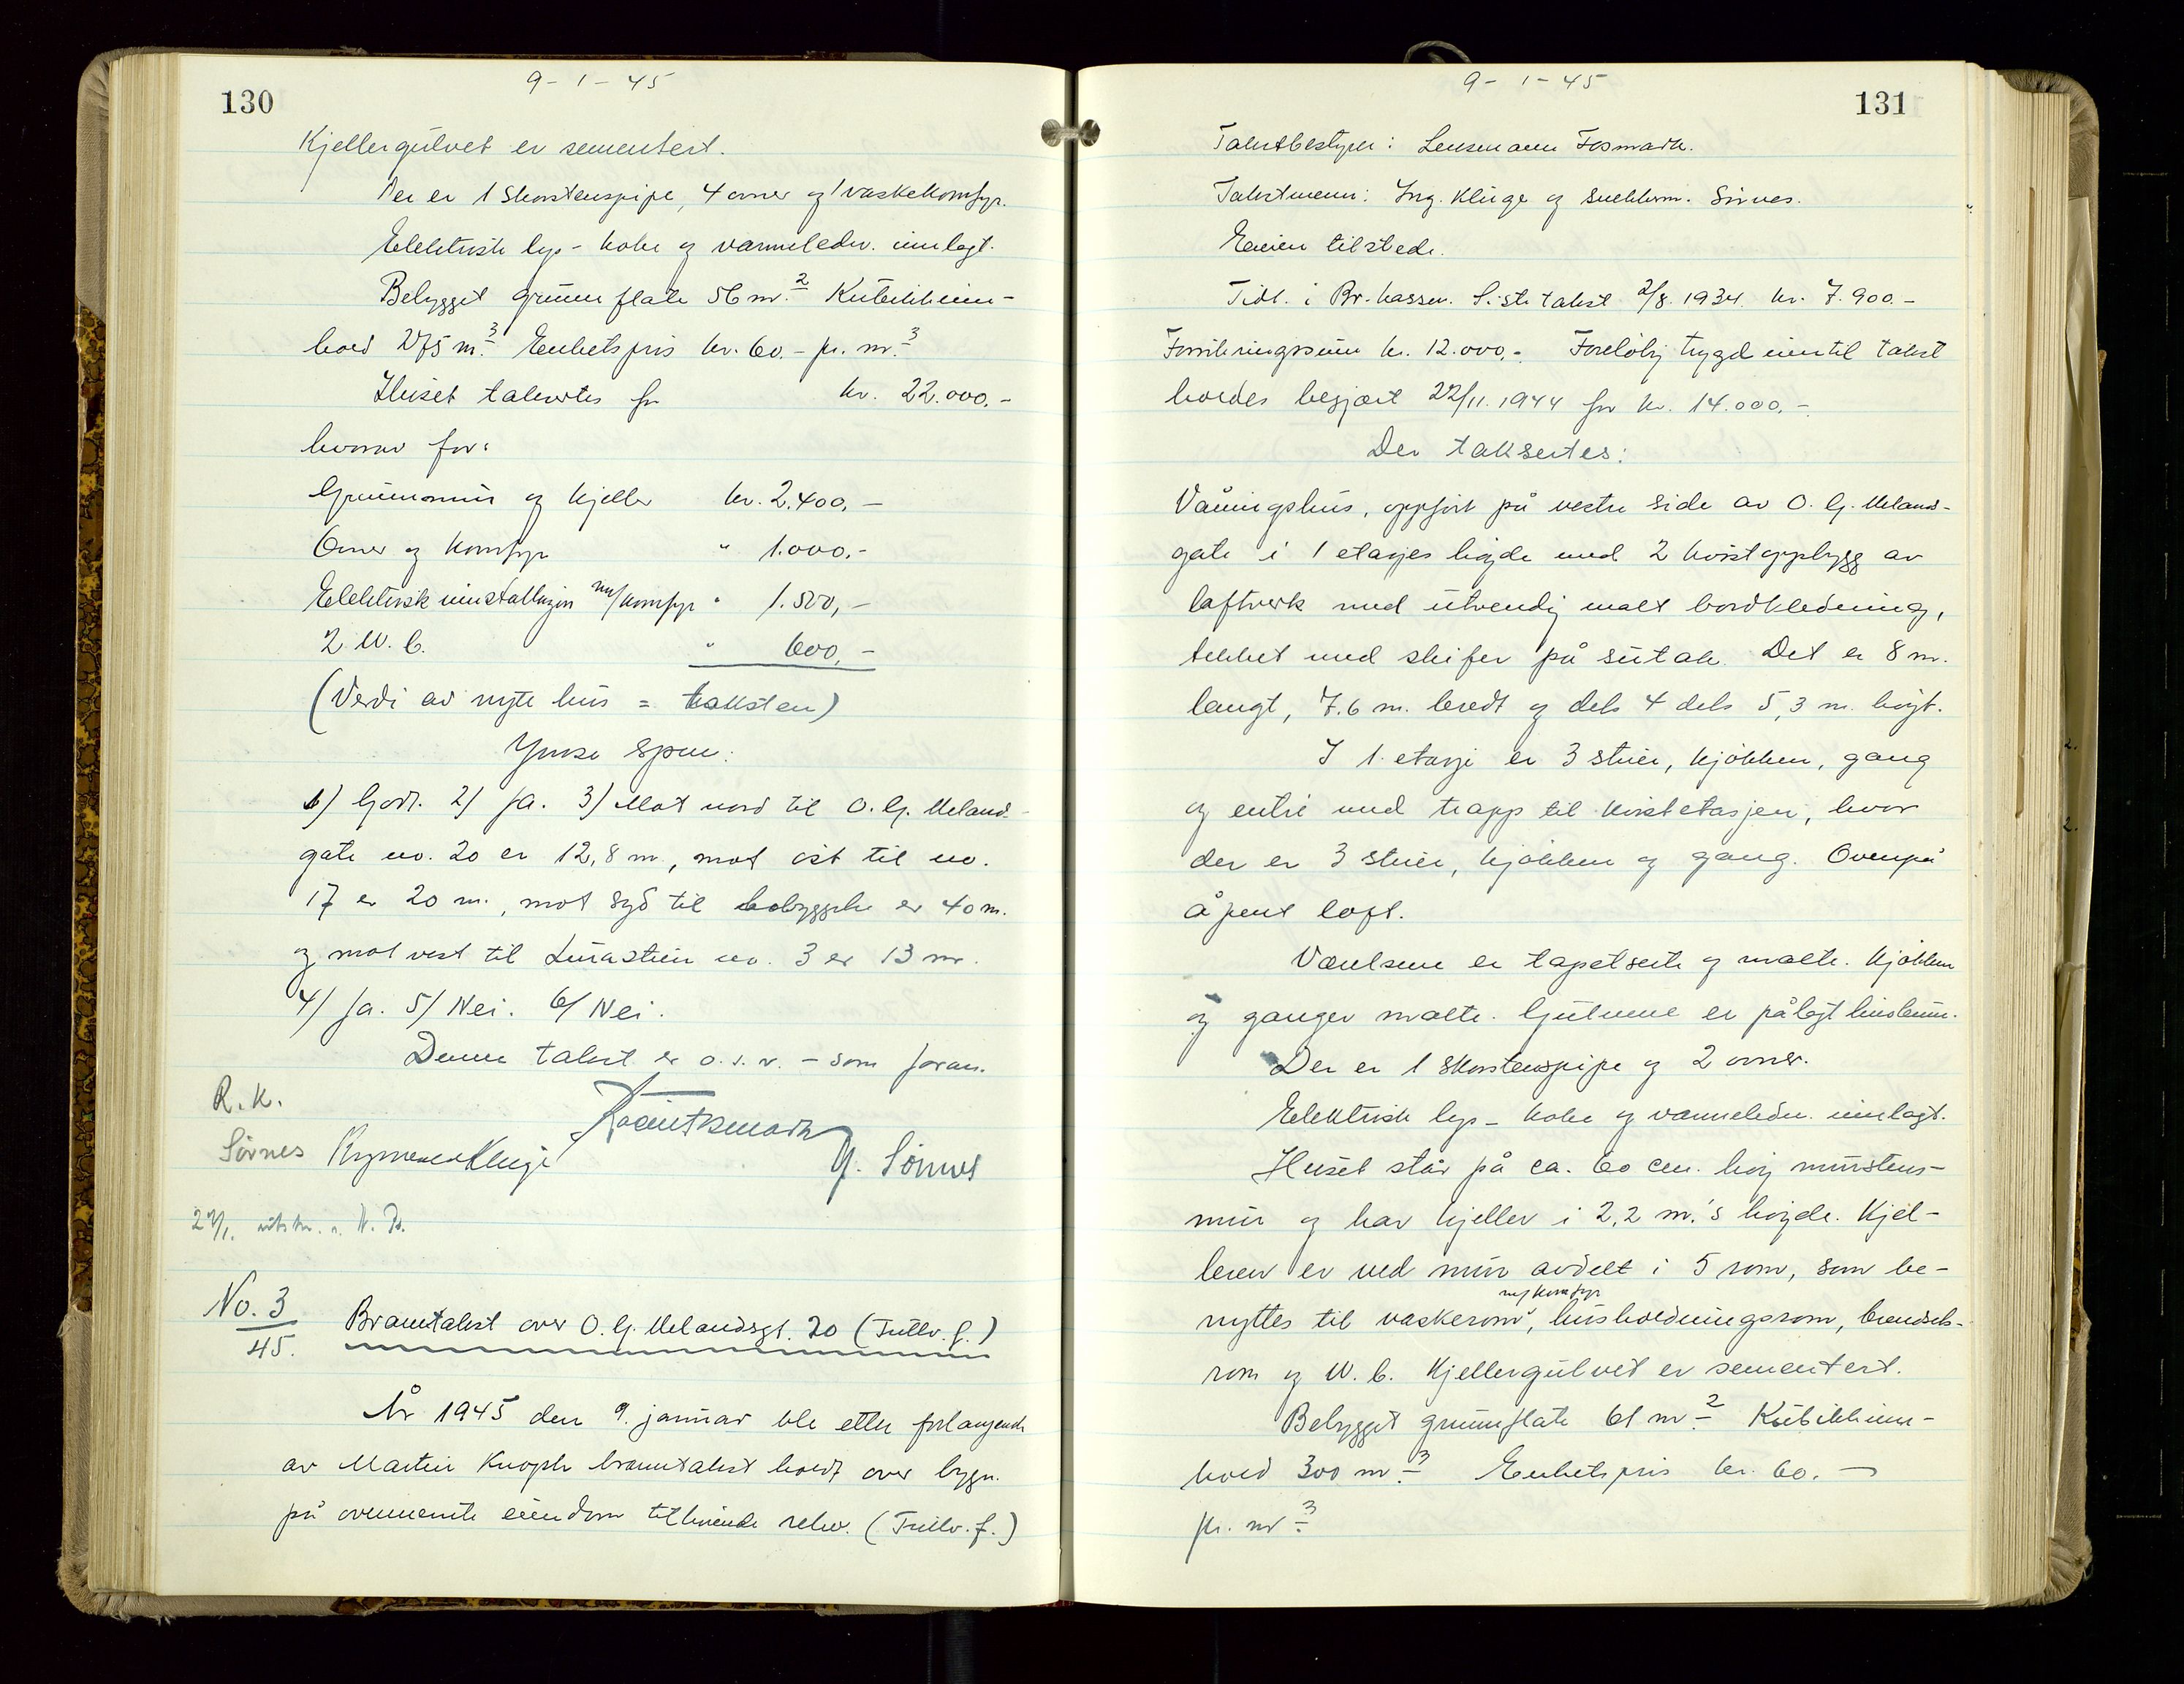 130
9-1-45
Kjellergulvet er sementert.
Der er 1 skorstenspipe, 4 ovner og 1 vaskekomfyr.
Elektrisk lys- koke og varmeledn. innlagt.
Bebygget grunnflate 56 m.² Kubikkinn-
hold 275 m.³ Enhetspris kr. 60.- pr. m.³
Huset takseres for kr. 22.000.-
hvorav for:
Grunnmur og kjeller kr. 2.400,-
Ovner og komfyr " 1.000.-
Elektrisk innstallasjon m/komfyr " 1.500,-
2 W.C. " 600,-
(Verdi av nytt hus = taksten)
Ymse spm.
1) Godt. 2) Ja. 3) Mot nord til O. G. Melands-
gate no. 20 er 12,8 m., mot øst til no.
17 er 20 m., mot syd til bebyggelse er 40 m.
og mot vest til Lurastien no. 3 er 13 m.
4) Ja. 5) Nei. 6) Nei.
Denne takst er o.s.v. - som foran.
R.K.
Sörnes Kluge G. Sörnes
No. 3
45.
Branntakst over O. G. Melandsgt. 20 (Tullv. f.)
År 1945 den 9. januar ble etter forlangende
av Martin Knoph branntakst holdt over bygn.
på ovennevnte eiendom tilhørende rekv. (Tullv. f.)
9-1-45
131
Takstbestyrer: Lensmann Fosmark.
Takstmenn: Ing. Kluge og snekkerm. Sörnes.
Eieren tilstede.
Tidl. i Br. kassen. Siste takst 2/8. 1934. kr. 7.900.-
Forsikringssum kr. 12.000,-. Foreløbig trygd inntil takst
holdes begjært 22/11. 1944 for kr. 14.000.-
Der takseres:
Våningshus, oppført på vestre side av O. G. Melands-
gate i 1 etasjes høyde med 2 kvistoppbygg av
laftverk med utvendig malt bordkledning,
tekket med skifer på sutak. Det er 8 m.
langt, 7.6 m. bredt og dels 4 dels 5,3 m. høyt.
I 1. etasje er 3 stuer, kjøkken, gang
og entre med trapp til kvistetasjen, hvor
der er 3 stuer, kjøkken og gang. Ovenpå
åpent loft.
Værelsene er tapetserte og malte. Kjøkken
og ganger malte. Gulvene er pålagt linoleum.
Der er 1 skorstenspipe og 2 ovner.
Elektrisk lys- koke og varmeledn. innlagt.
Huset står på ca. 60 cm. høy murstens-
mur og har kjeller i 2,2 m.'s høyde. Kjel-
leren er ved mur avdelt i 5 rom, som be-
m/komfyr
nyttes til vaskerom, husholdningsrom, brendsels-
rom og W.C. Kjellergulvet er sementert.
Bebygget grunnflate 61 m.² Kubikkinn-
hold 300 m.³ Enhetspris kr. 60.-
pr. m.³